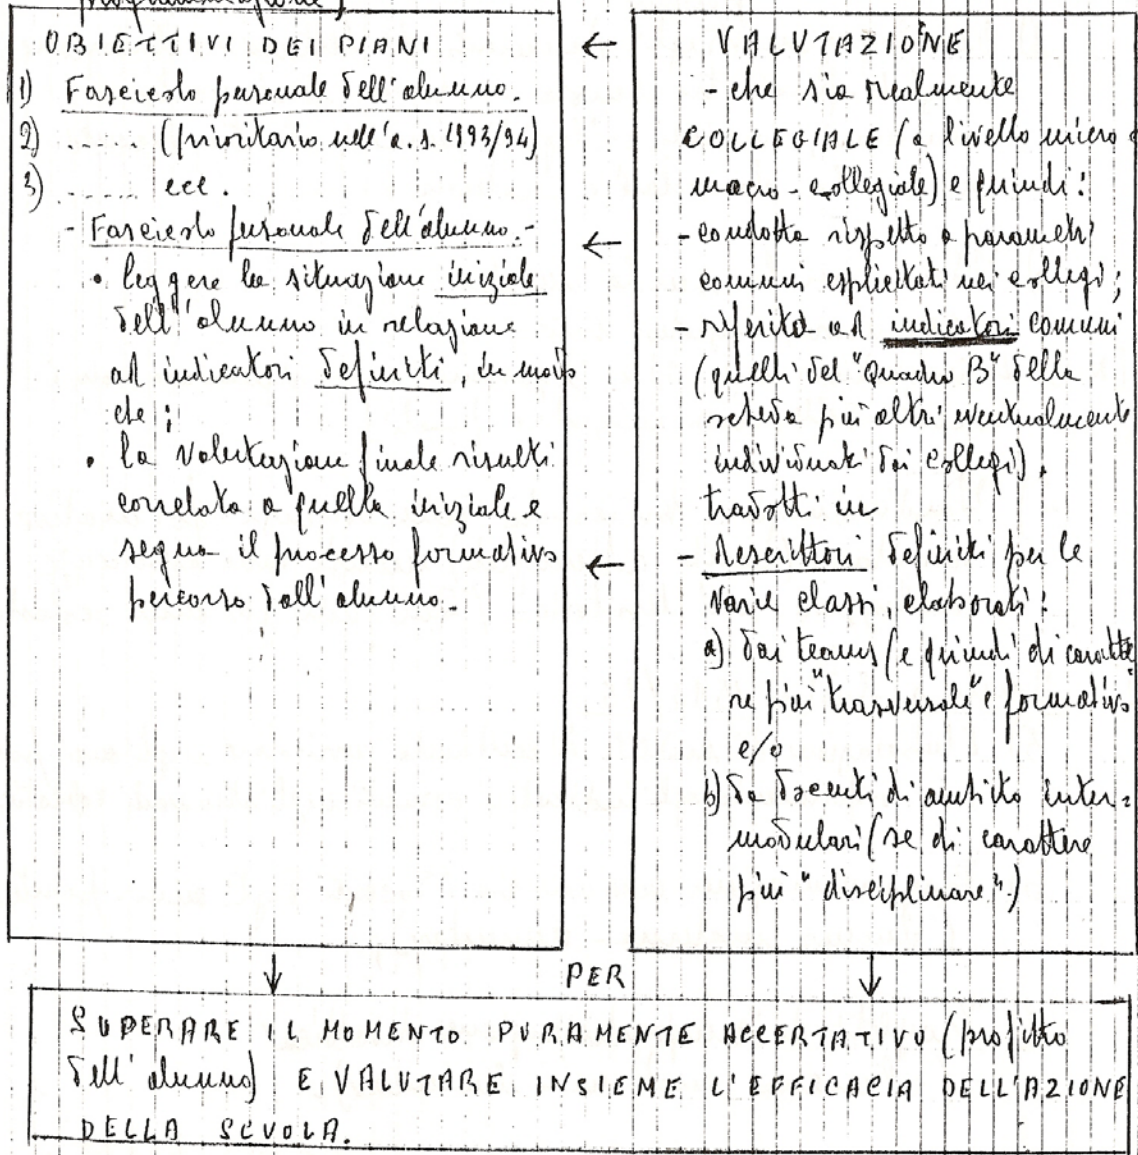 programmazione)
OBIETTIVI DEI PIANI
1) Fascicolo personale dell'alunno.
2) ..... (prioritario nell'a.s. 1993/94)
3) ..... ecc.
- Fascicolo personale dell'alunno.-
• leggere la situazione iniziale
dell'alunno in relazione
ad indicatori definiti, in modo
che:
• la valutazione finale risulti
correlata a quella iniziale e
segua il processo formativo
percorso dall'alunno.
← VALUTAZIONE
- che sia realmente
COLLEGIALE (a livello micro e
macro-collegiale) e quindi:
← - condotta rispetto a parametri
comuni esplicitati nei collegi;
- riferita ad indicatori comuni
(quelli del "Quadro B" della
scheda più altri eventualmente
individuati dai collegi).
tradotti in
← - descrittori definiti per le
varie classi, elaborati:
a) dai teams (e quindi di caratte
re più "trasversale" e formativo"
e/o
b) da docenti di ambito inter=
modulari (se di carattere
più "disciplinare".)
↓ PER ↓
SUPERARE IL MOMENTO PURAMENTE ACCERTATIVO (profitto
dell'alunno) E VALUTARE INSIEME L'EFFICACIA DELL'AZIONE
DELLA SCUOLA.